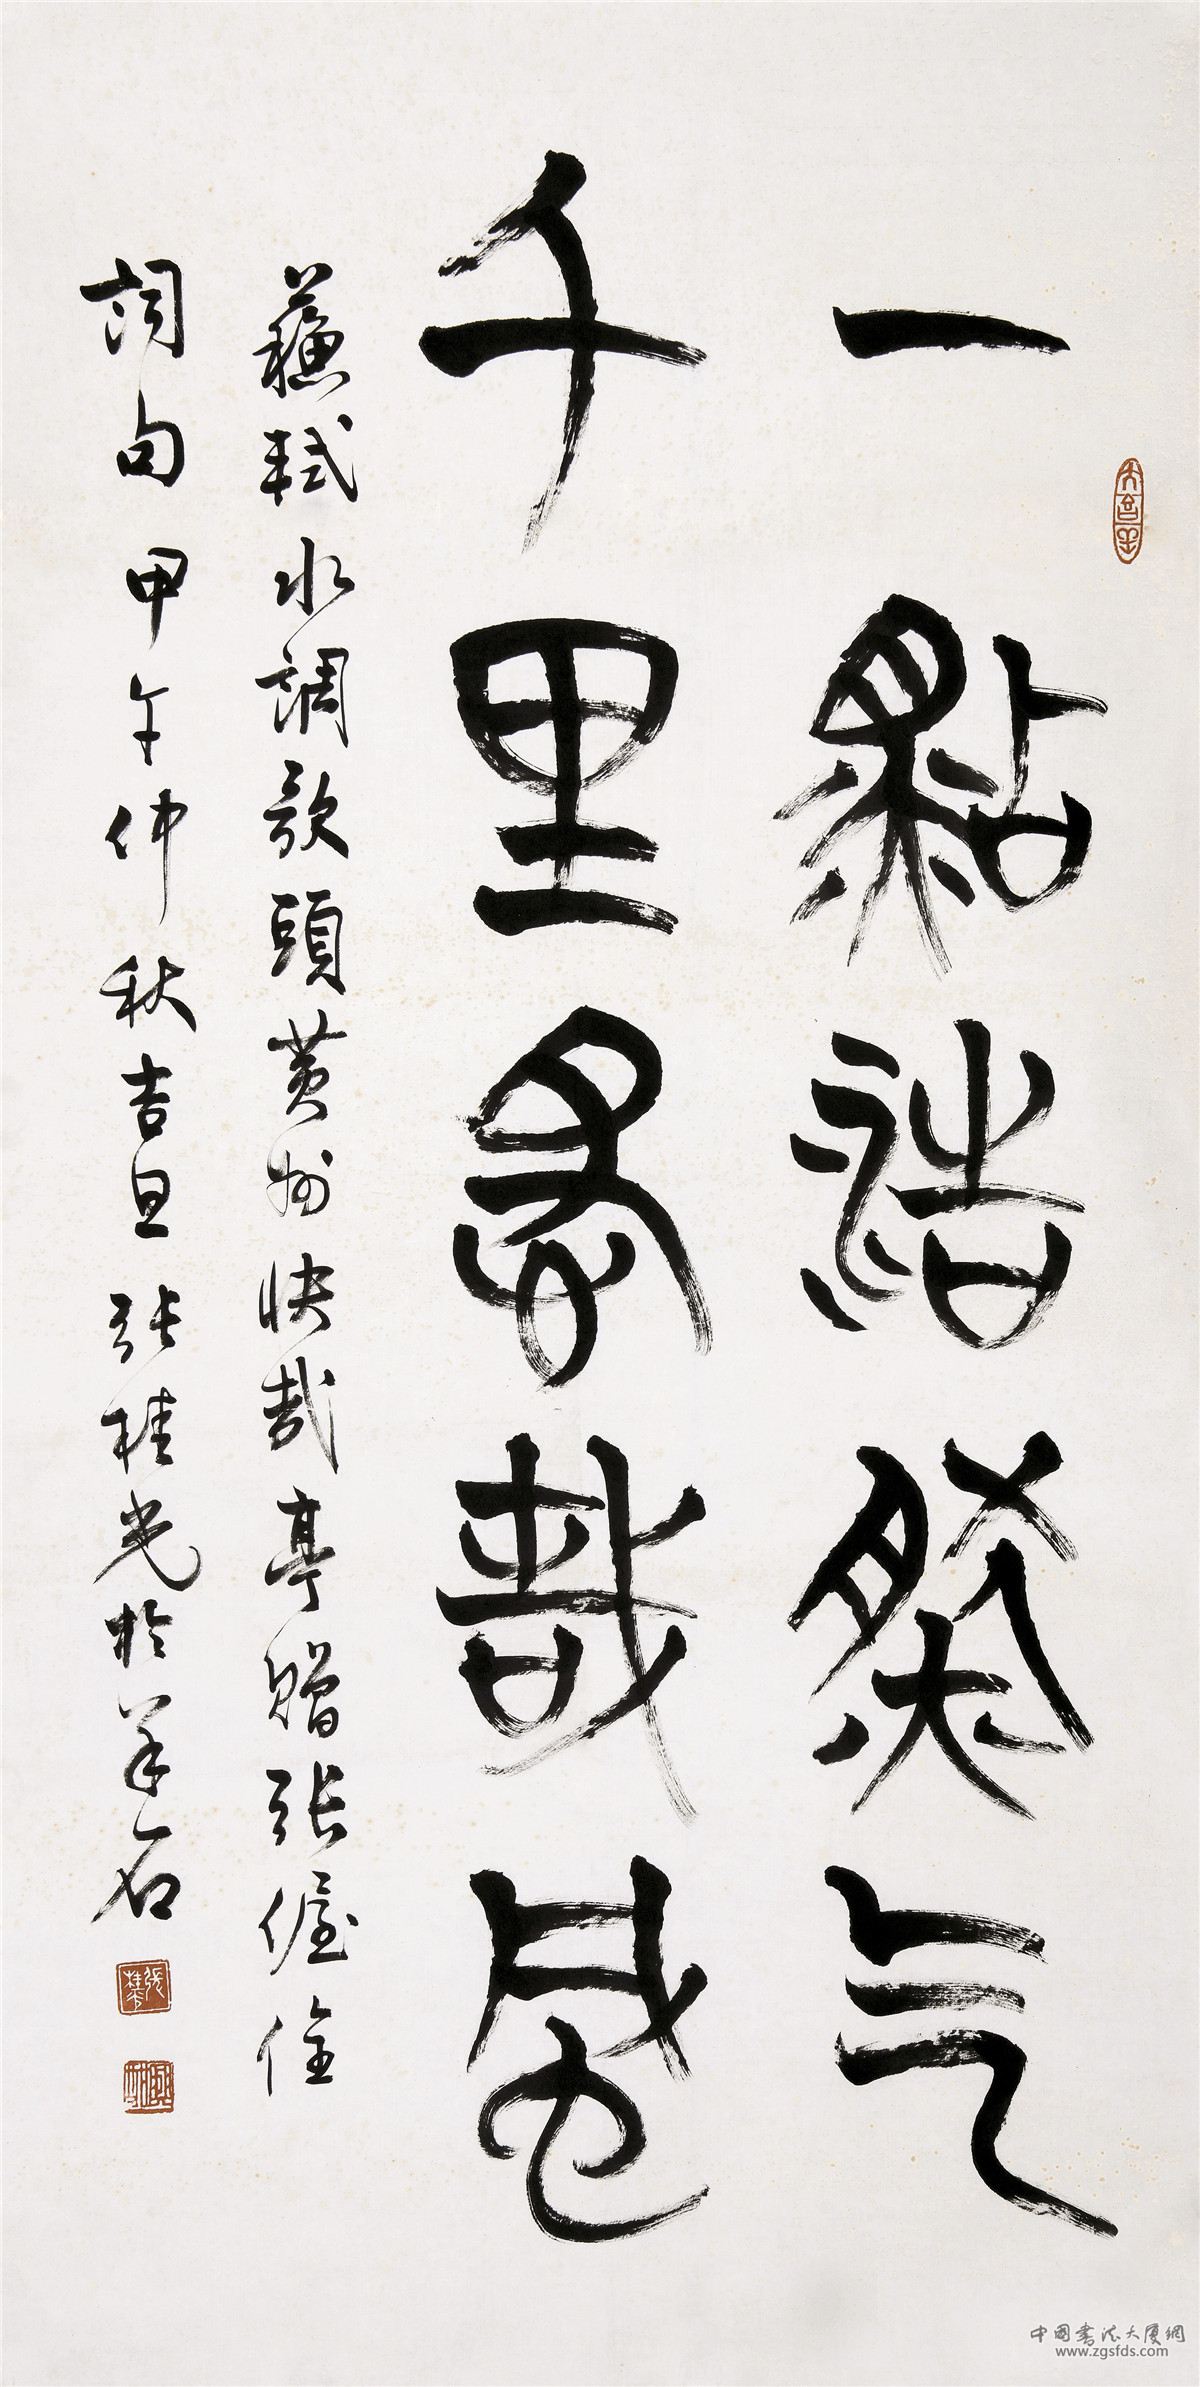 一點浩然气
千里快哉風
蘇軾水調歌頭黃州快哉亭贈張偓佺
詞句甲午仲秋吉旦張桂光於羊石
中国書法大厦網
www.zgsfds.com